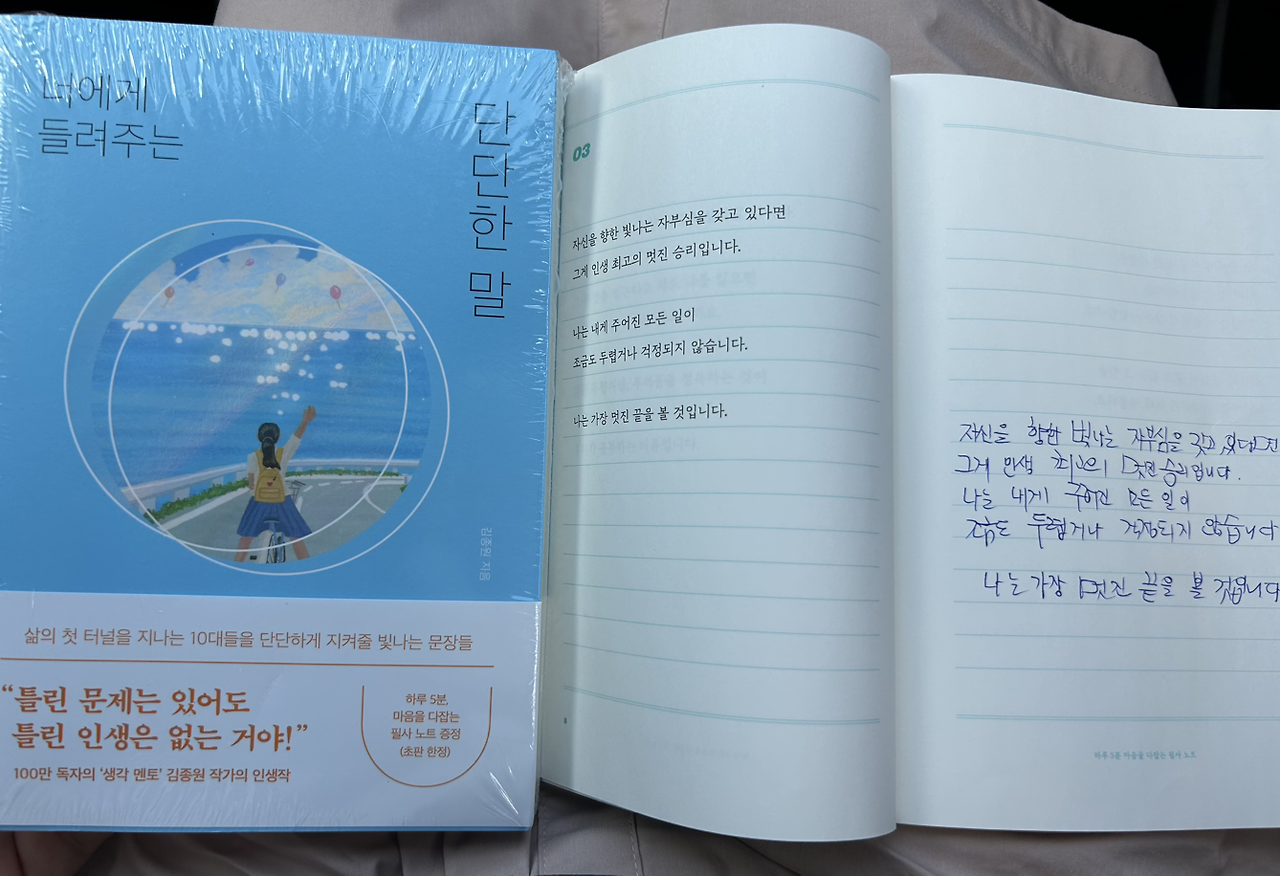 너에게
들려주는
단단한 말
김종원 지음
삶의 첫 터널을 지나는 10대들을 단단하게 지켜줄 빛나는 문장들
“틀린 문제는 있어도
틀린 인생은 없는 거야!”
100만 독자의 ‘생각 멘토’ 김종원 작가의 인생작
하루 5분,
마음을 다잡는
필사 노트 증정
(초판 한정)
03
자신을 향한 빛나는 자부심을 갖고 있다면
그게 인생 최고의 멋진 승리입니다.
나는 내게 주어진 모든 일이
조금도 두렵거나 걱정되지 않습니다.
나는 가장 멋진 끝을 볼 것입니다.
8
자신을 향한 빛나는 자부심을 갖고 있다면
그게 인생 최고의 멋진 승리입니다.
나는 내게 주어진 모든 일이
조금도 두렵거나 걱정되지 않습니다
나는 가장 멋진 끝을 볼 것입니다
하루 5분 마음을 다잡는 필사 노트